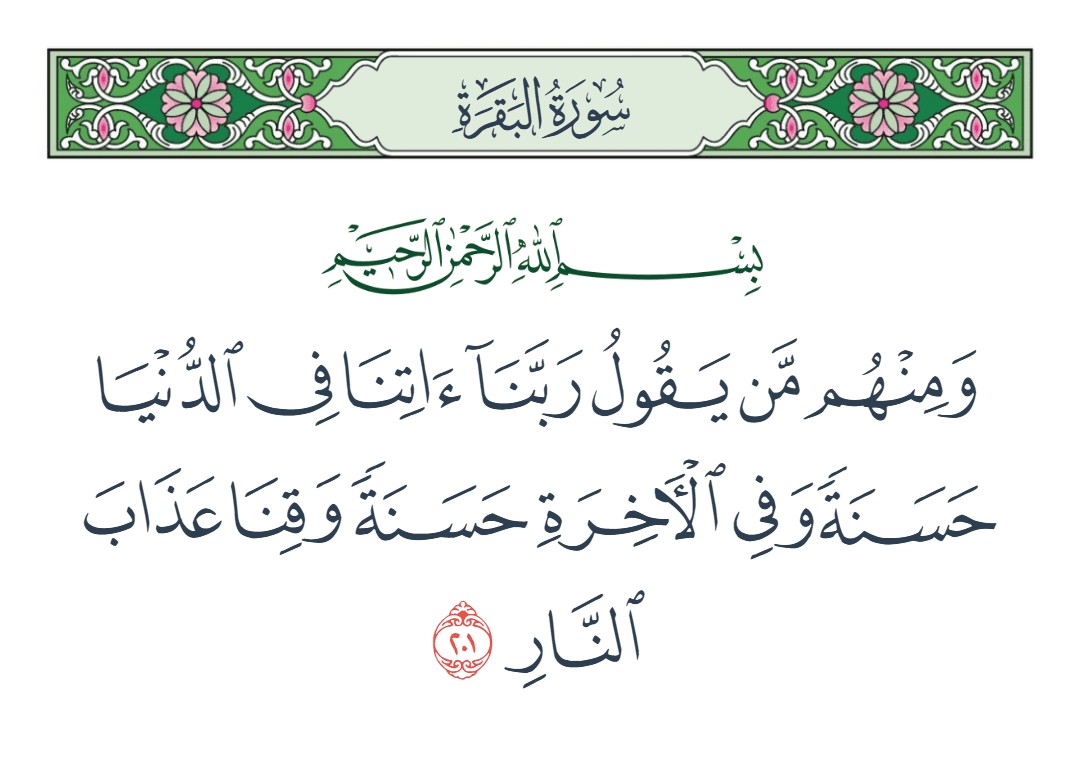 سُورَةُ البَقَرَةِ
بِسْمِ ٱللَّهِ ٱلرَّحْمَٰنِ ٱلرَّحِيمِ
وَمِنْهُم مَّن يَقُولُ رَبَّنَآ ءَاتِنَا فِى ٱلدُّنْيَا
حَسَنَةً وَفِى ٱلْأَخِرَةِ حَسَنَةً وَقِنَا عَذَابَ
ٱلنَّارِ ٢٠١